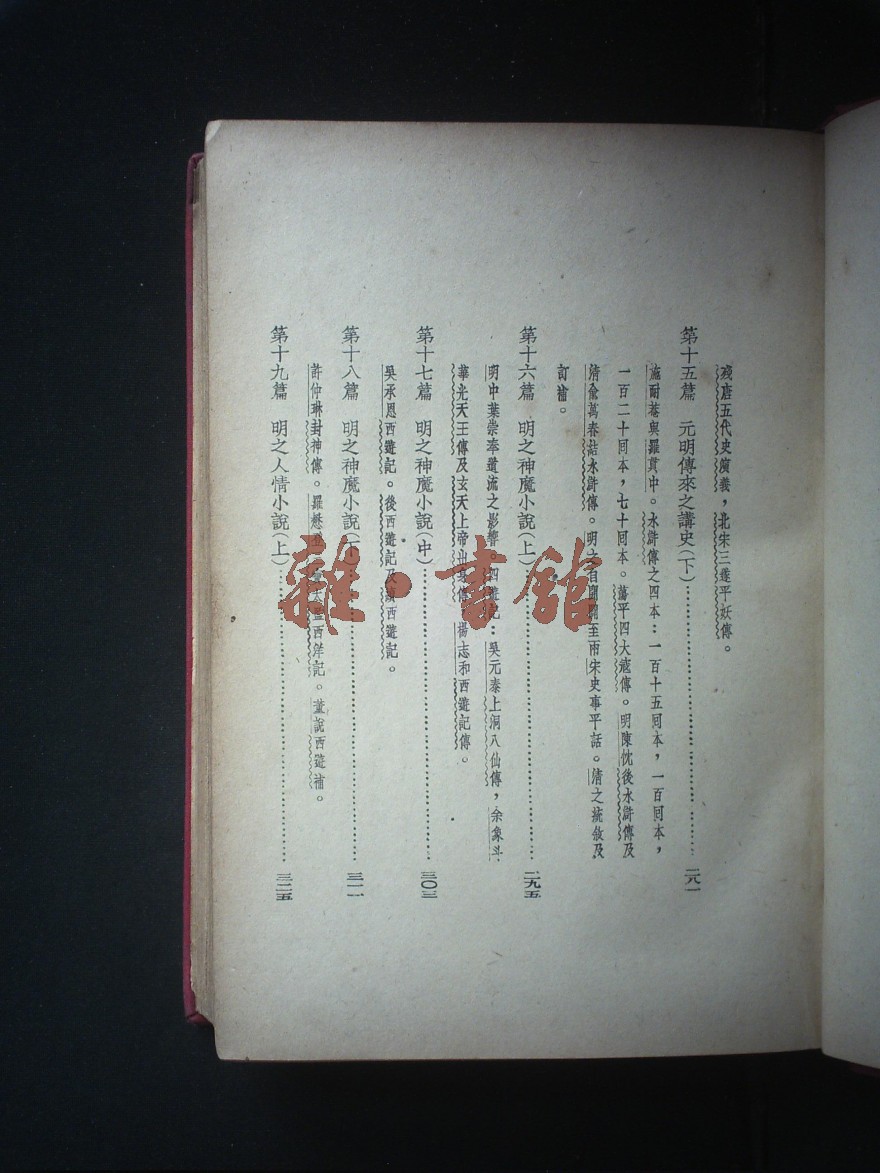 殘唐五代史演義，北宋三遂平妖傳。
第十五篇　元明傳來之講史（下）……二八一
施耐菴與羅貫中。水滸傳之四本：一百十五回本，一百回本，
一百二十回本，七十回本。蕩平四大寇傳。明陳忱後水滸傳及
清俞萬春結水滸傳。明之自開闢至兩宋史事平話。清之統敘及
訂補。
第十六篇　明之神魔小說（上）……二九五
明中葉崇奉道流之影響。四遊記：吳元泰上洞八仙傳，余象斗
華光天王傳及玄天上帝出身傳，楊志和西遊記傳。
第十七篇　明之神魔小說（中）……三〇三
吳承恩西遊記。後西遊記及續西遊記。
第十八篇　明之神魔小說（下）……三一一
許仲琳封神傳。羅懋登三寶太監西洋記。董說西遊補。
第十九篇　明之人情小說（上）……三二五
雜·書館